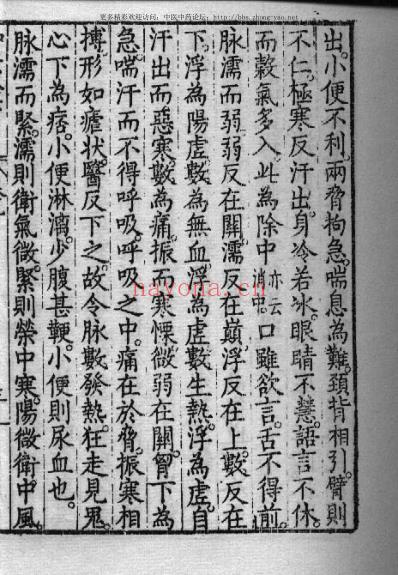 更多精彩欢迎访问：中医中药论坛：http://bbs.zhong-yao.net
出。小便不利。兩脅拘急。喘息為難。頸背相引。臂則
不仁。極寒反汗出。身冷若冰。眼睛不慧。語言不休。
而穀氣多入。此為除中亦云消中。口雖欲言。舌不得前。
脉濡而弱。弱反在關。濡反在巔。浮反在上。數反在
下。浮為陽虛。數為無血。浮為虛。數生熱。浮為虛。自
汗出而惡寒。數為痛。振而寒慄。微弱在關。胷下為
急。喘汗而不得呼吸。呼吸之中。痛在於脅。振寒相
搏。形如瘧狀。醫反下之。故令脉數發熱。狂走見鬼。
心下為痞。小便淋漓。少腹甚鞕。小便則尿血也。
脉濡而緊。濡則衛氣微。緊則榮中寒。陽微衛中風。
hayona.cn